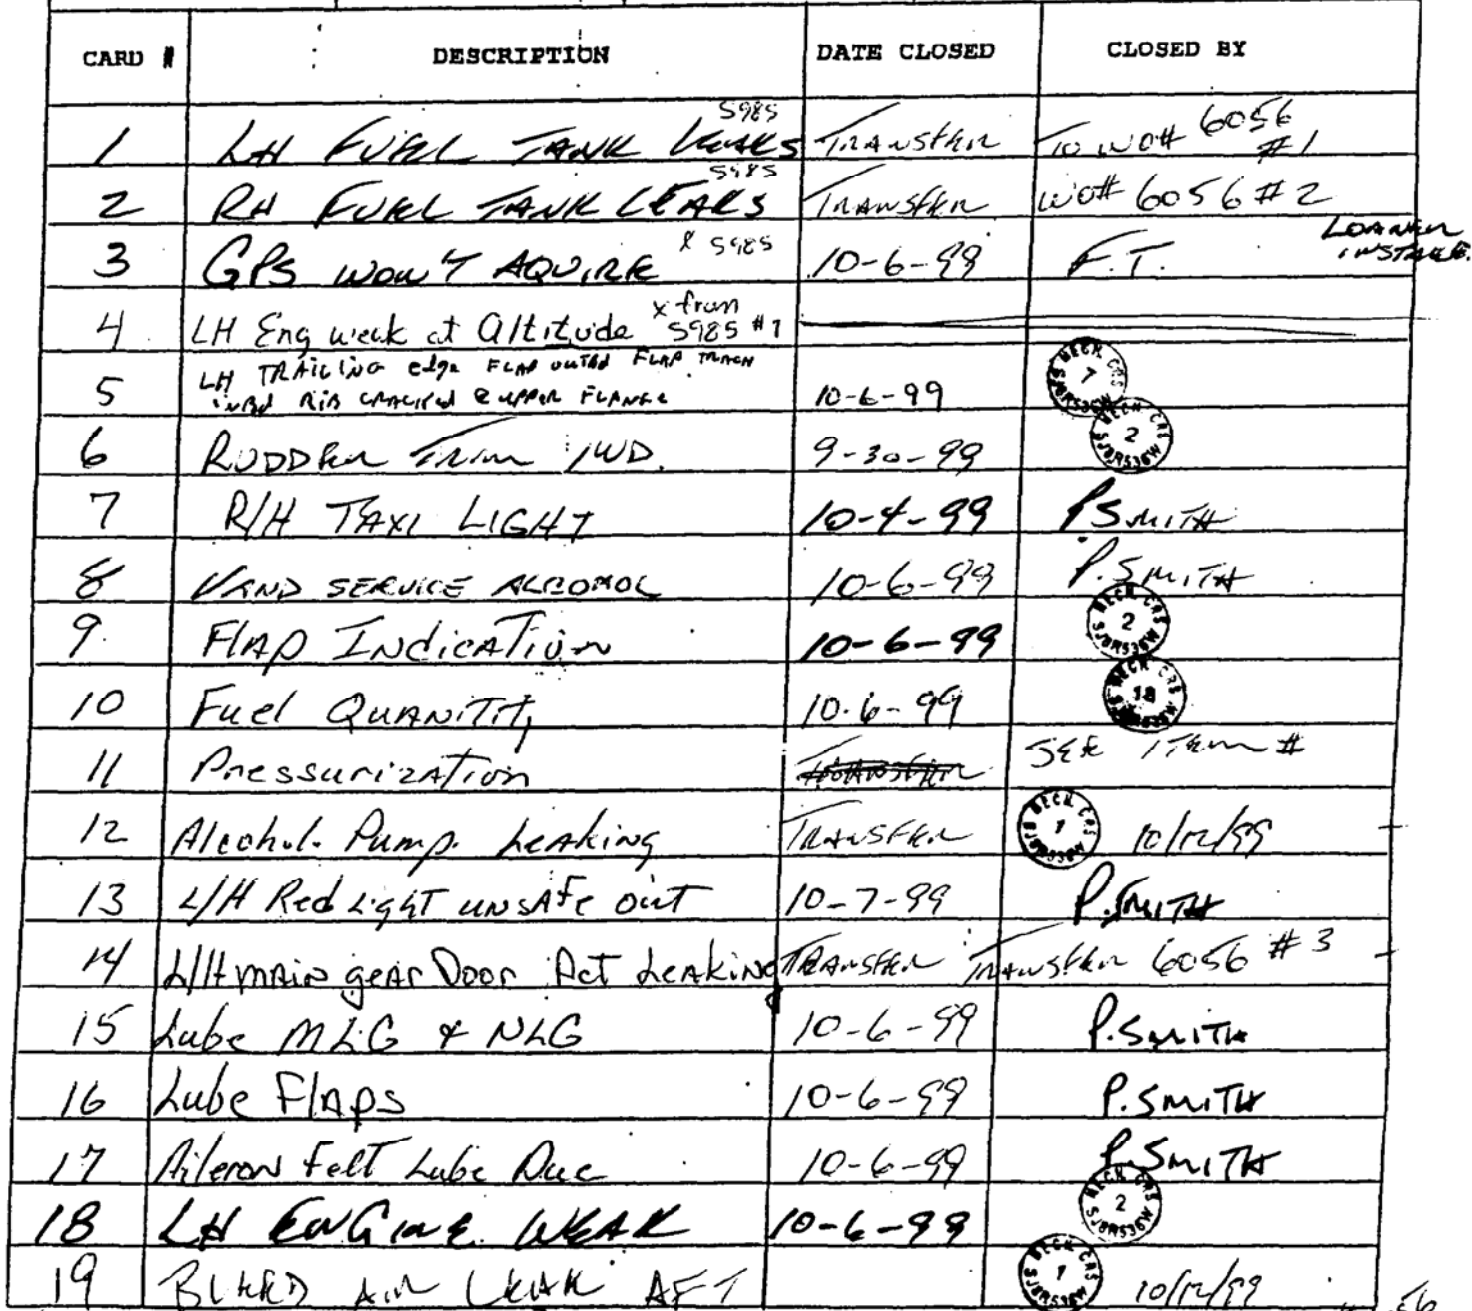 CARD # DESCRIPTION DATE CLOSED CLOSED BY
5985
1 LH FUEL TANK LEAKS TRANSFER TO WO# 6056 #1
5985
2 RH FUEL TANK LEAKS TRANSFER WO# 6056 #2
3 GPS WON'T AQUIRE X 5985 10-6-99 F.T. LOANER INSTALLE.
4 LH Eng weak at Altitude x from 5985 #7
5 LH TRAILING edge FLAP outbd FLAP TRACK 10-6-99 BECK CRS 7 SJBR536W
inbd RIB CRACKED @ UPPER FLANGE
6 RUDDER TRIM IWD. 9-30-99 BECK CRS 2 SJBR536W
7 R/H TAXI LIGHT 10-4-99 P SMITH
8 SERVICE ALCOHOL 10-6-99 P. SMITH
9. FlAp IndicATion 10-6-99 BECK CRS 2 SJBR536W
10 Fuel QUANITITY 10-6-99 BECK CRS 18 SJBR536W
11 PressurizATion TRANSFER SEE ITEM #
12 Alcohol Pump Leaking TRANSFER BECK CRS 1 SJBR536W 10/12/99
13 L/H Red Light unsAfe out 10-7-99 P. SMITH
14 L/H mAin geAr Door Act LeAking TRANSFER TRANSFER 6056 #3
15 Lube MLG & NLG 10-6-99 P. SMITH
16 Lube FlAps 10-6-99 P. SMITH
17 Aileron Felt Lube Due 10-6-99 P. SMITH
18 LH ENGINE WEAK 10-6-99 BECK CRS 2 SJBR536W
19 BLEED AIR LEAK AFT BECK CRS 1 SJBR536W 10/12/99
56